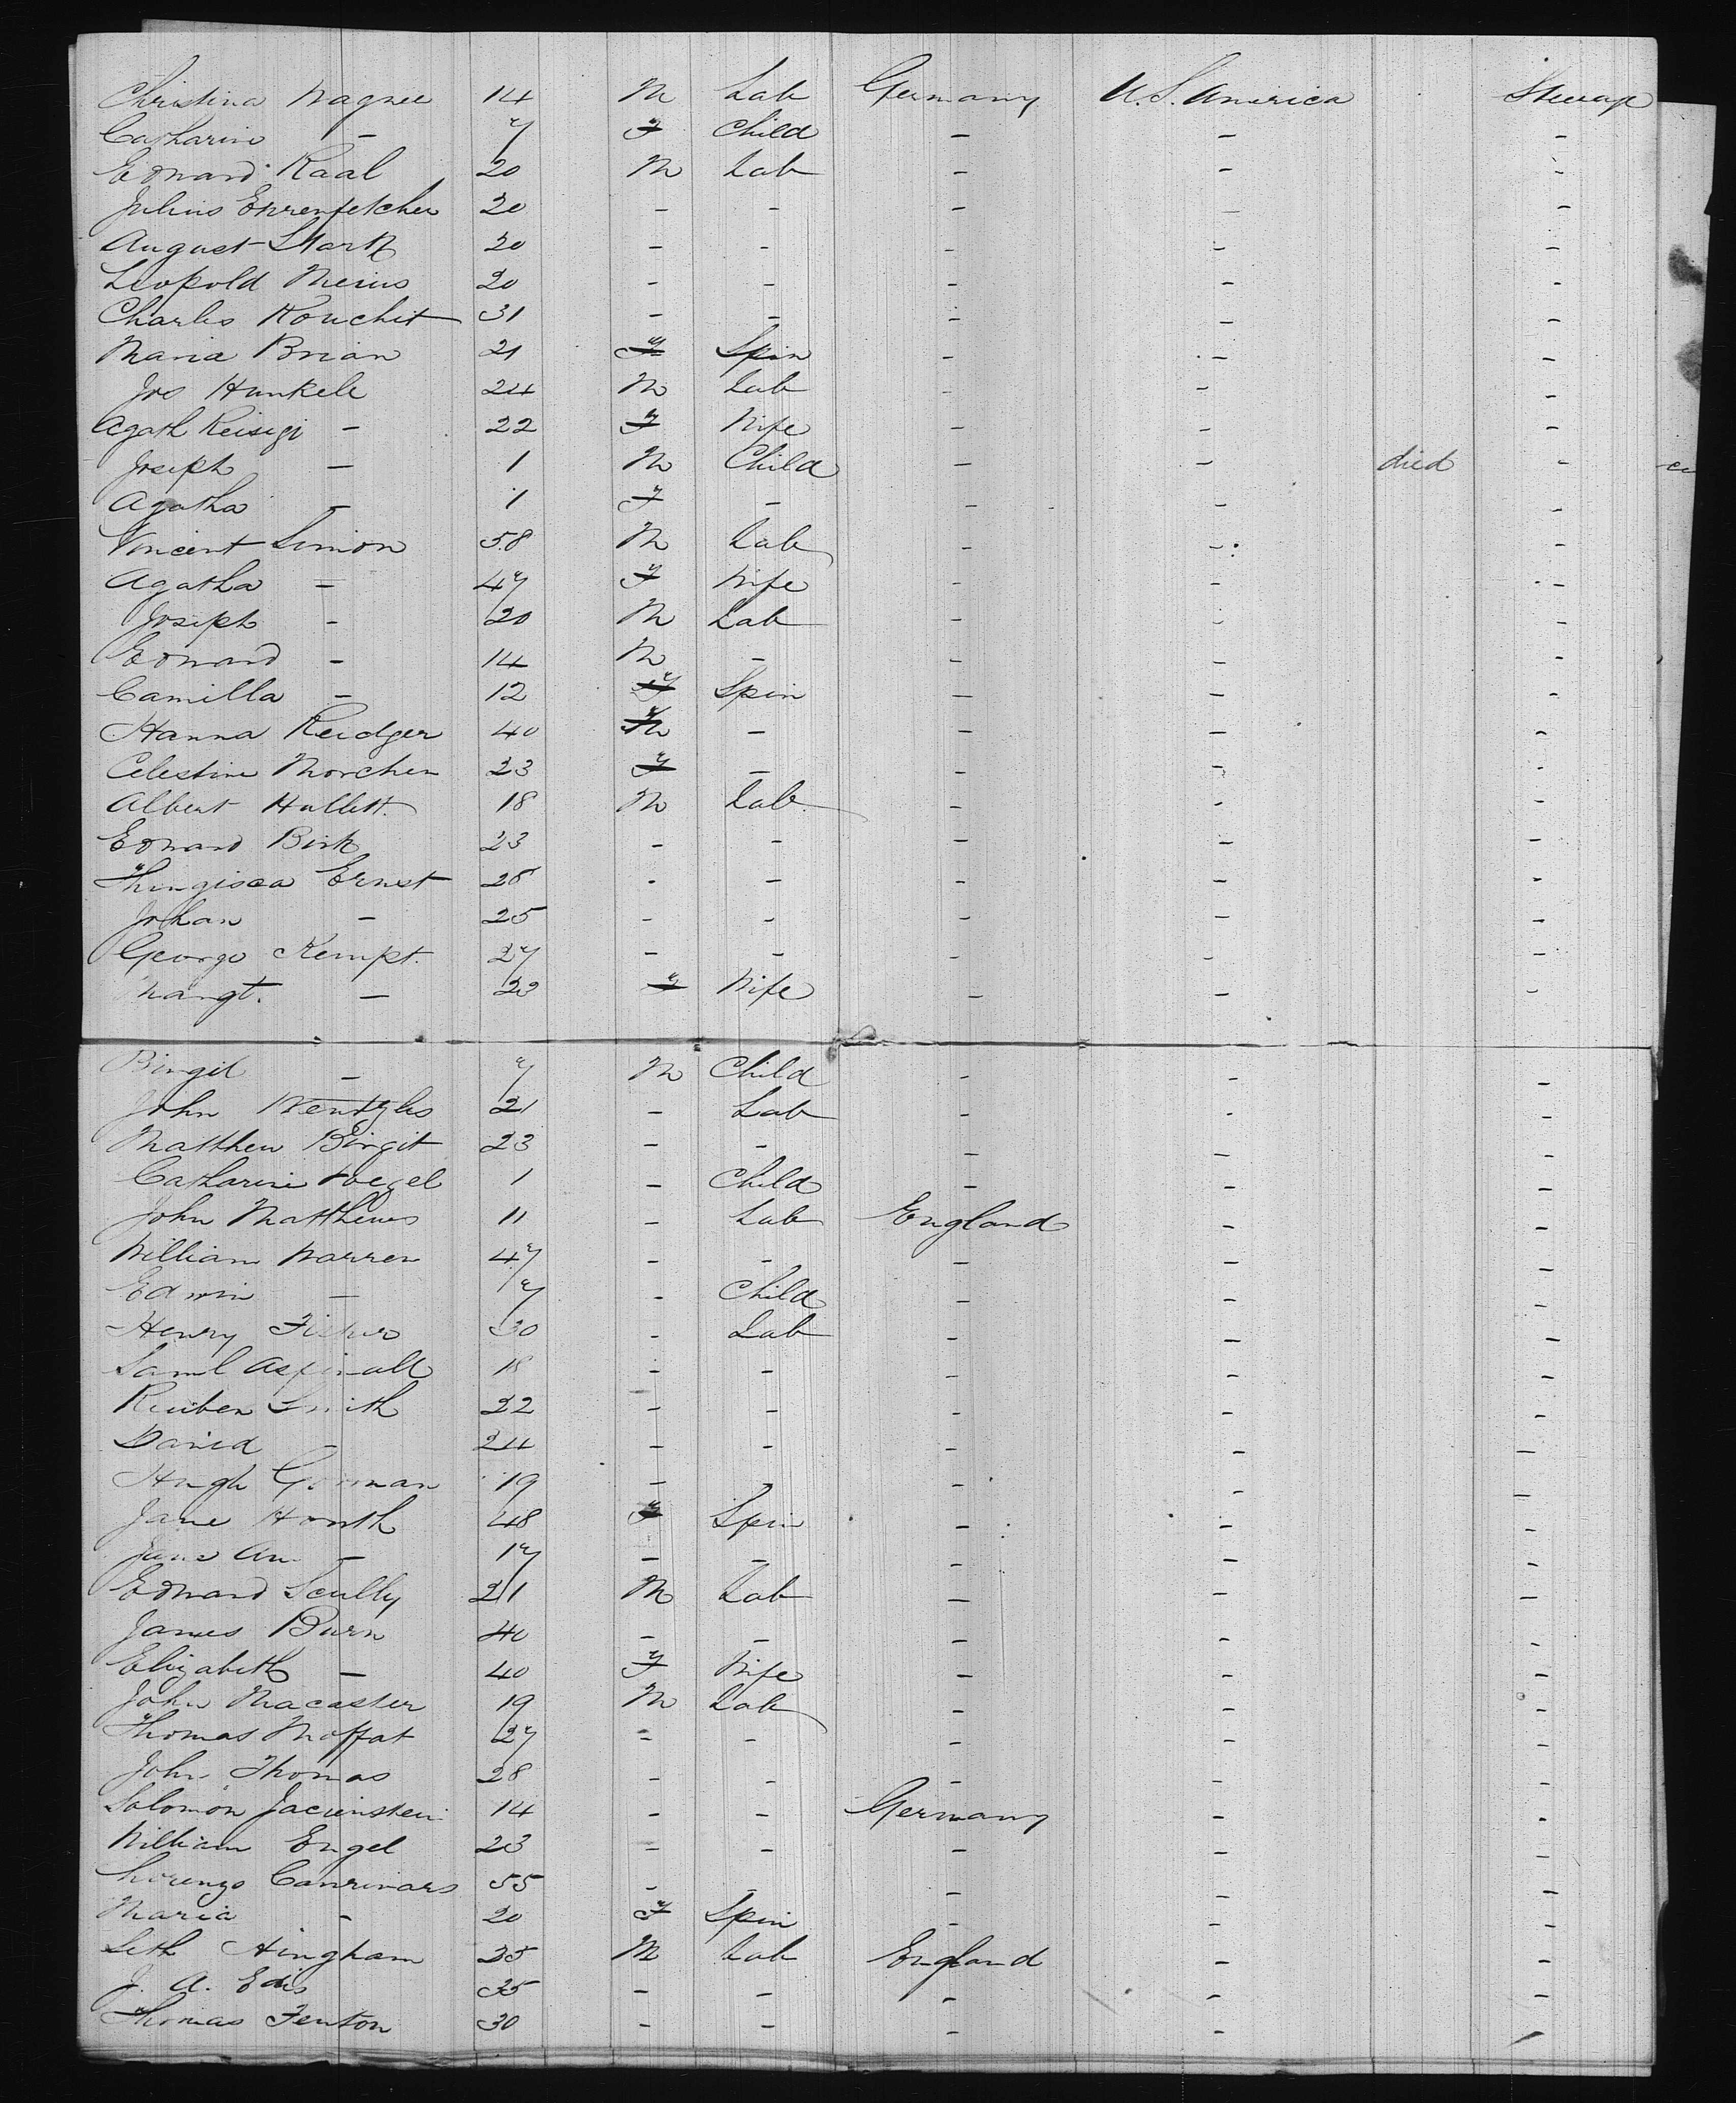 Christina Wagner 14 M Lab Germany U.S. America Steerage
Catharine - 7 F Child - - -
Edward Raal 20 M Lab - - -
Julius Ehrenfelcher 20 - - - - -
August Stark 20 - - - - -
Leopold Merius 20 - - - - -
Charles Kouchit 31 - - - - -
Maria Brian 21 F Spin - - -
Jos Hunkele 24 M Lab - - -
Agath Reisigi - 22 F Wife - - -
Joseph - 1 M Child - - died -
Agatha - 1 F - - - -
Vincent Simon 58 M Lab - - -
Agatha - 47 F Wife - - -
Joseph - 20 M Lab - - -
Edward - 14 M - - - -
Camilla - 12 F Spin - - -
Hanna Reidger 40 F - - - -
Celestine Morchen 23 F - - - -
Albert Hullett. 18 M Lab - - -
Edward Birk 23 - - - - -
Ernst 28 - - - - -
Johan - 25 - - - - -
George Kempt. 27 - - - - -
Margt. - 23 F Wife - - -
Birgit - 7 M Child - - -
John Wentzles 21 - Lab - - -
Matthew Birgit 23 - - - - -
Catharine Vogel 1 - Child - - -
John Matthews 11 - Lab England - -
William Warren 47 - - - - -
Edwin - 17 - Child - - -
Henry Fisher 30 - Lab - - -
Saml Aspinall 18 - - - - -
Reuben Smith 22 - - - - -
David - 24 - - - - -
Hugh Gorman 19 - - - - -
Jane Howth 48 F Spin - - -
Jane Ann - 17 - - - - -
Edward Scully 21 M Lab - - -
James Burn 40 - - - - -
Elizabeth - 40 F Wife - - -
John Macaster 19 M Lab - - -
Thomas Moffat 27 - - - - -
John Thomas 28 - - - - -
Solomon 14 - - Germany - -
William Engel 23 - - - - -
Lorenzo 55 - - - - -
Maria - 20 F Spin - - -
Seth Hingham 35 M Lab England - -
J. A. Edis 35 - - - - -
Thomas Fenton 30 - - - - -